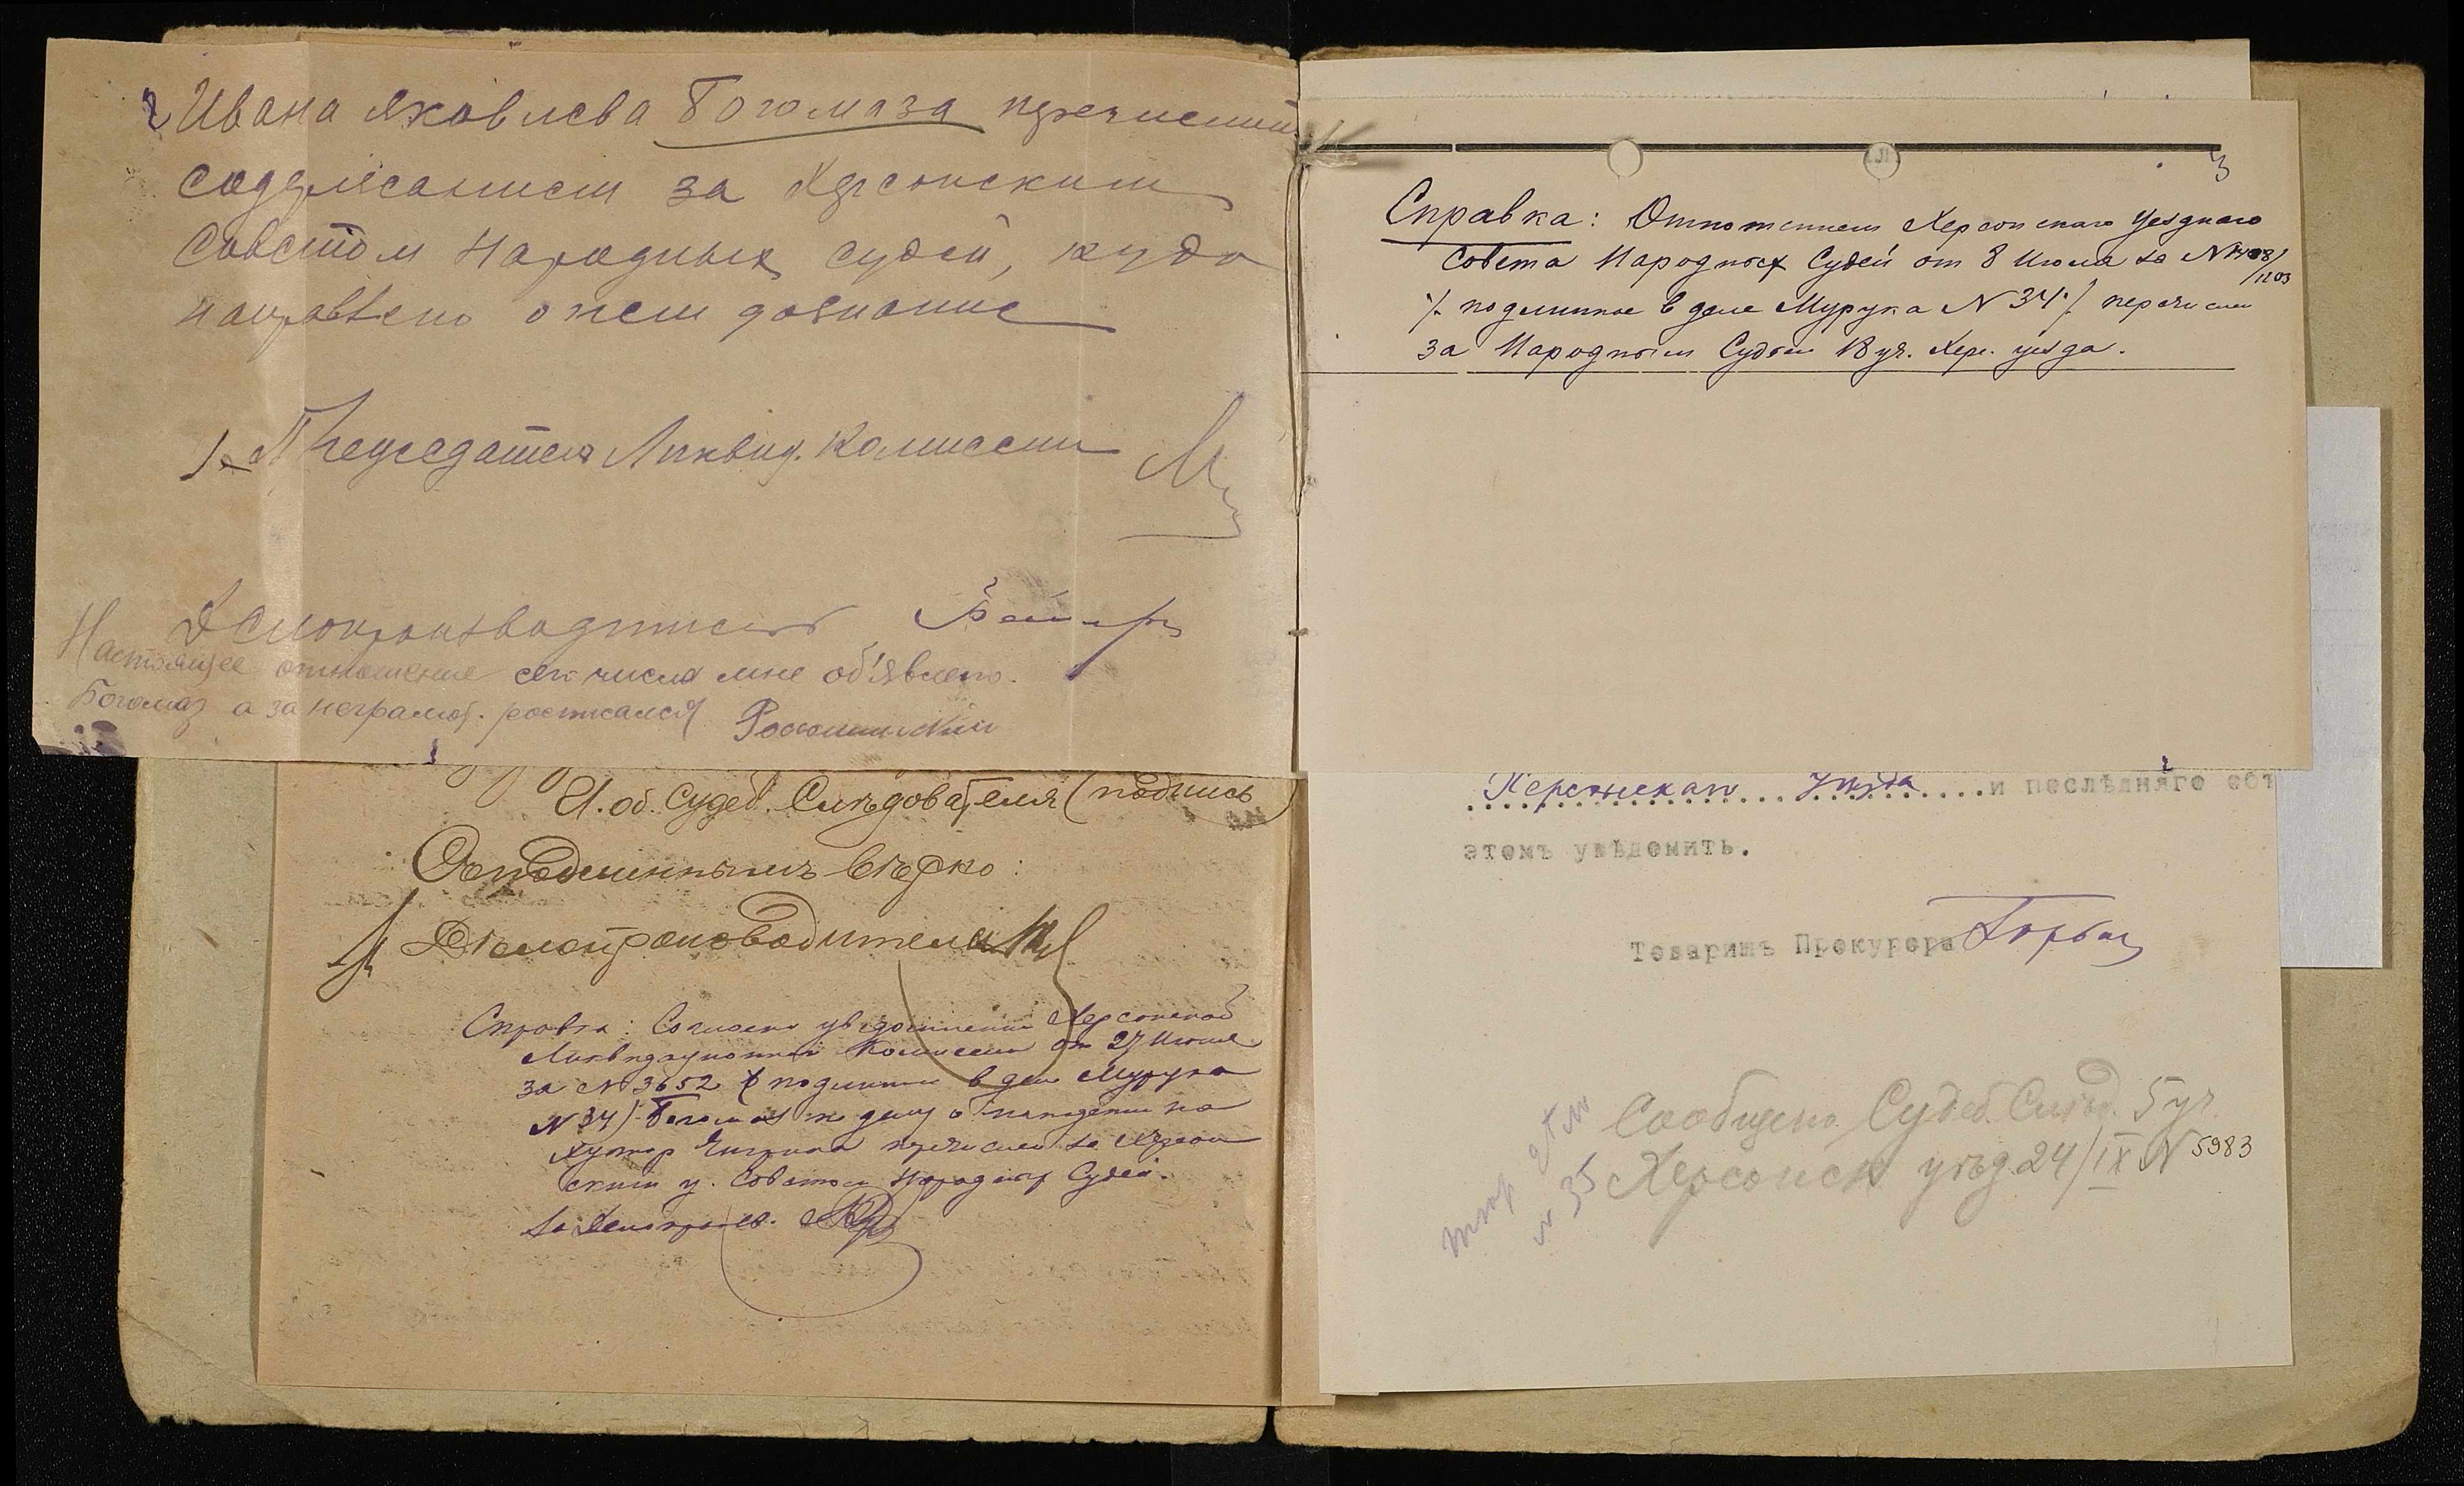 Ивана Яковлева Богомаза перечислить
содержанием за Херсонским
Советом Народных судей, куда
направлено о нем дознание
Председатель Ликвид. Комиссии
Делопроизводитель
Настоящее отношение сего числа мне об'явлено.
Богомаз а за неграмот. росписался
И. об. Судеб. Слѣдователя (подпись)
Съ подлиннымъ вѣрно:
Дѣлопроизводитель
Справка: Согласно уведомлению Херсонской
Ликвидационной Комиссии от 27 Июня
за N 3652 (подлинник в деле Мурука
N 34) Богомаз по делу о нападении на
хутор перечислен за Херсон
ским у. Советом Народных Судей.
За Делопроизв.
3
Справка: Отношением Херсонскаго Уезднаго
Совета Народных Судей от 8 Июля за N
/1203
/. подлинное в деле Мурука N 34 /. перечислен
за Народным Судьей 18 уч. Хер. уезда.
Херсонскаго Уѣзда и послѣдняго объ
этомъ увѣдомить.
Товарищъ Прокурора
Сообщено Судеб. Слѣд. 5 уч.
Херсонск уѣзд. 24/IX N 5983
N 35